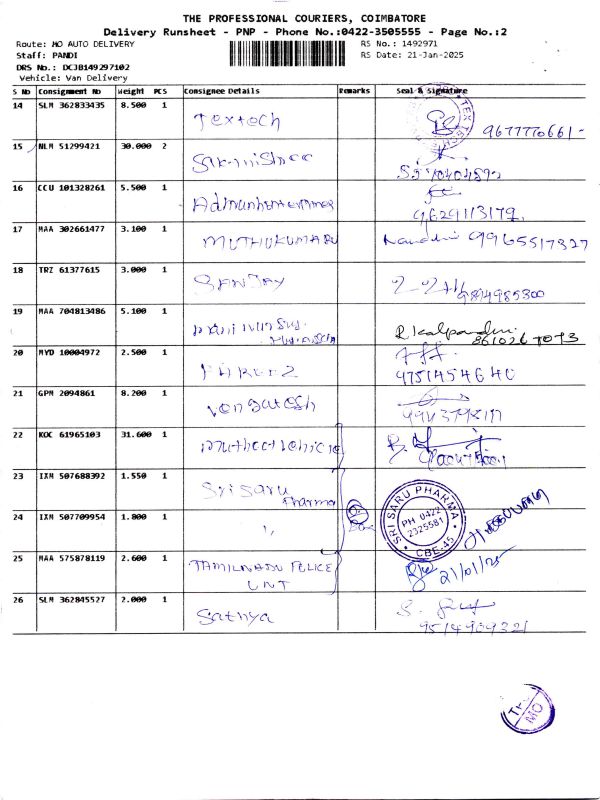 THE PROFESSIONAL COURIERS, COIMBATORE
Delivery Runsheet - PNP - Phone No.:0422-3505555 - Page No.:2
Route: MO AUTO DELIVERY
RS No.: 1492971
Staff: PANDI
RS Date: 21-Jan-2025
DRS No.: DCJB149297102
Vehicle: Van Delivery
S No Consignment No Weight PCS Consignee Details Remarks Seal & Signature
14 SLM 362833435 8.500 1 Textech 9677770661
15 NLM 51299421 30.000 2
16 CCU 101328261 5.500 1 9629113179
17 MAA 302661477 3.100 1 MUTHUKUMARU Nandhini 9965517327
18 TRZ 61377615 3.000 1 SANJAY 9894985300
19 MAA 704813486 5.100 1 R Kalpandini
20 MYD 10004972 2.500 1
21 GPM 2094861 8.200 1 Vengatesh
22 KOC 61965103 31.600 1
23 IXM 507688392 1.550 1 Sri Saru Pharma
SRI SARU PHARMA
PH 0422
2325581
CBE-45
24 IXM 507709954 1.800 1 ''
25 MAA 575878119 2.600 1 TAMILNADU POLICE UNT 21/01/25
26 SLM 362845527 2.000 1 Sathya 9514909321
MO